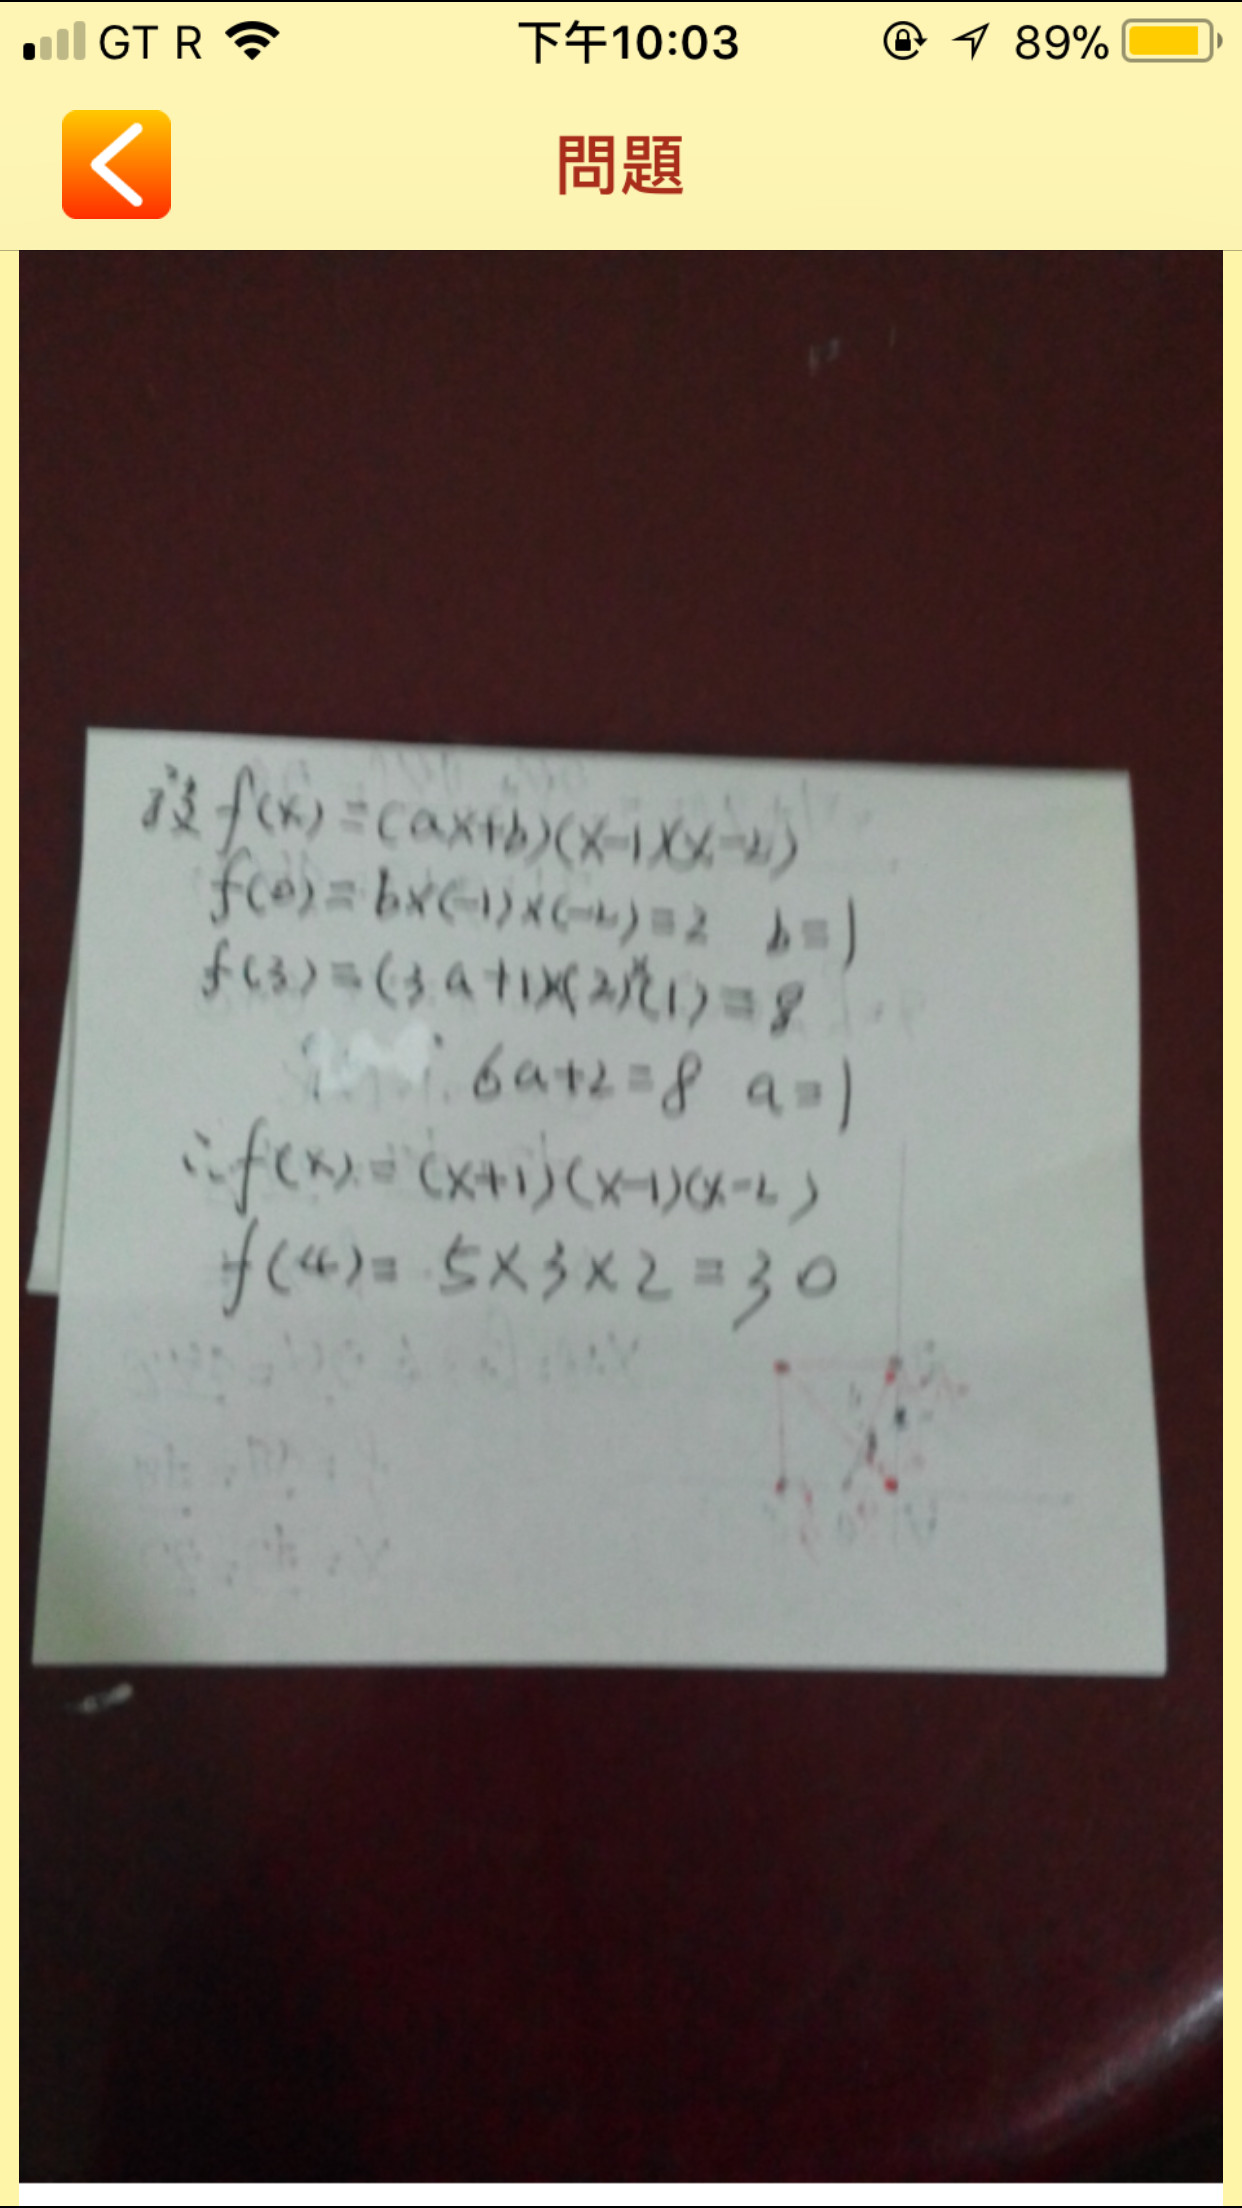 GT R 下午10:03 89%
問題
設 f(x)=(ax+b)(x-1)(x-2)
f(0)=b×(-1)×(-2)=2 b=1
f(3)=(3a+1)×(2)×(1)=8
6a+2=8 a=1
∴f(x)=(x+1)(x-1)(x-2)
f(4)=5×3×2=30